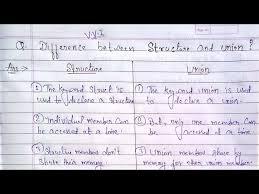 V.V.I
Q. Difference between Structure and Union ?
Ans :→ Structure Union
1 The keyword struct is used to declare a structure
1 The keyword union is used to declare a union.
2 Individual member can be accessed at a time
2 But, only one member can be accessed at a time
3 Structure members don't share their memory
3 Union members share the memory for other union members